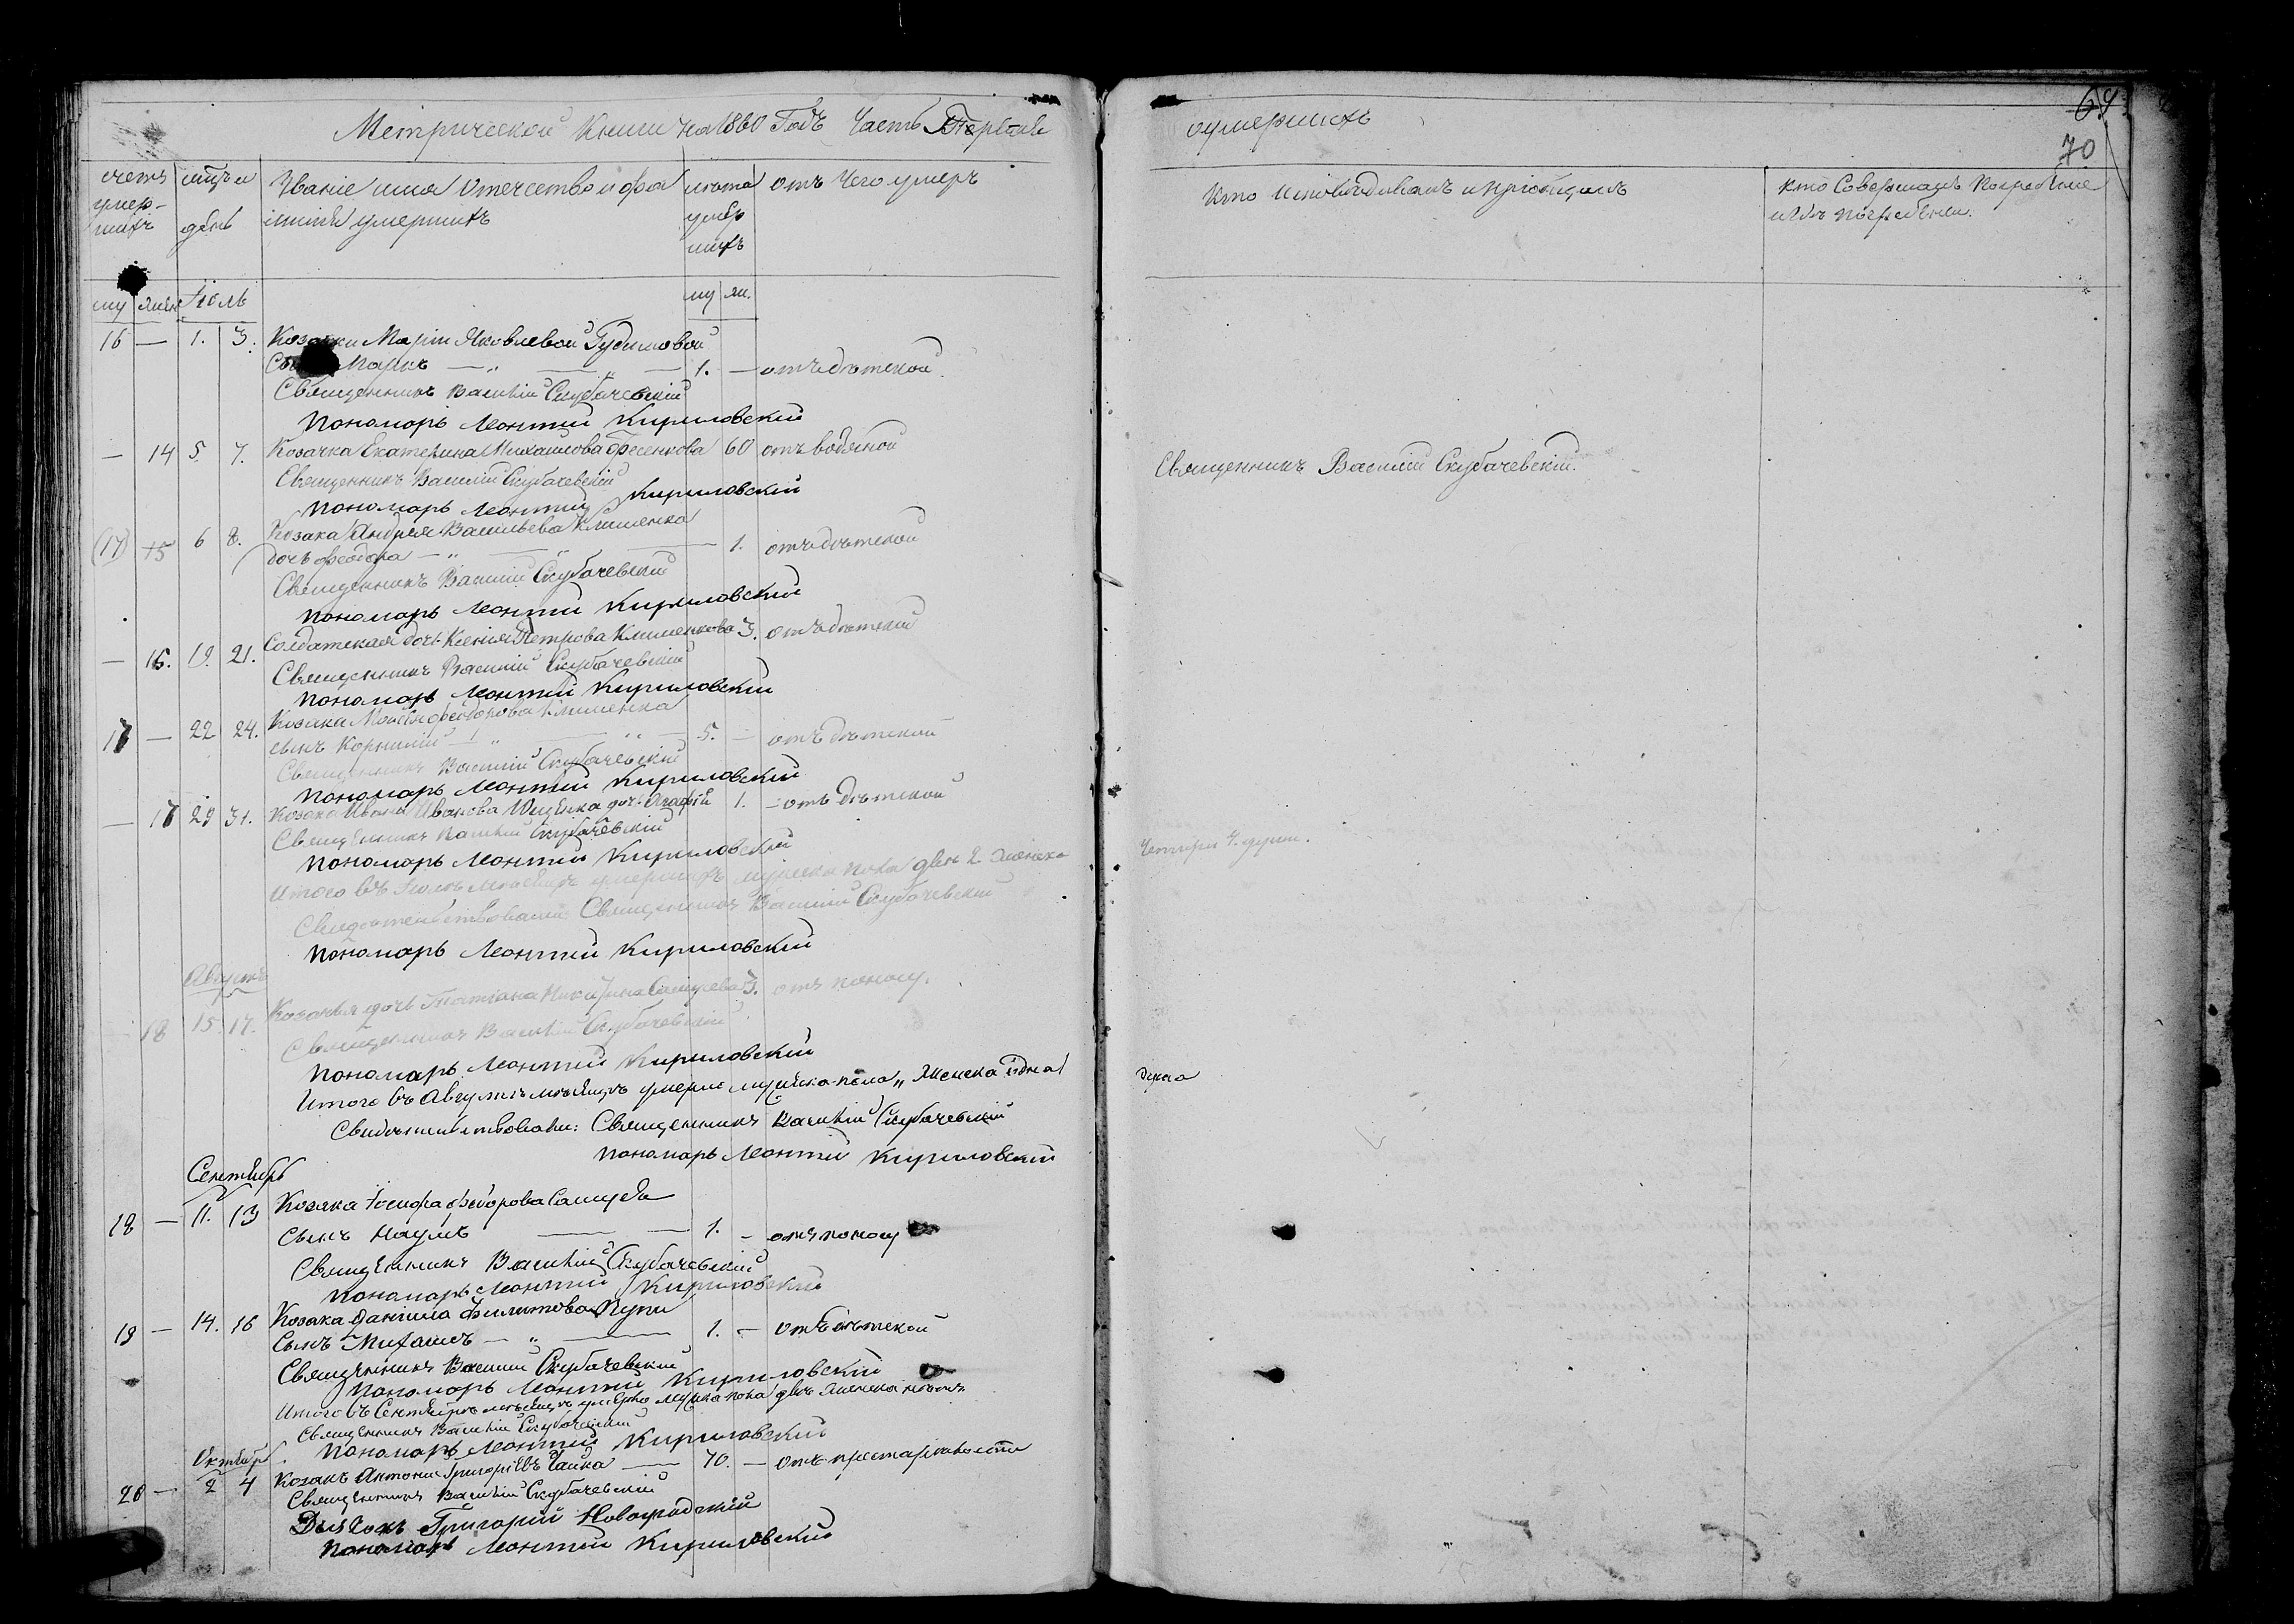 Метрической Книги на 1860 Годъ Часть Третья
счетъ умер-шихъ
мѣсяцъ и день
Званіе имя Отечество и фамилія умершихъ
лѣта умершихъ
отъ Чего умеръ
му жен Іюль му ж.
16 — 1. 3. Козачки Маріи Яковлевой Гудимовой
Маркъ — „ — „ — 1. — отъ дѣтской
Священникъ Василій Скубачевскій
Пономарь Леонтій Кириловскій
— 14 5 7. Козачка Екатерина Михайлова Фесенкова 60 отъ водяной
Священникъ Василій Скубачевскій
пономарь Леонтій Кириловскій
(17) 15 6 8. Козака Андрея Васильева Клименка
дочь Феодора — „ — „ — 1. отъ дѣтской
Священникъ Василій Скубачевскій
пономарь Леонтій Кириловскій
— 16. 19. 21. Солдатская дочь Ксенія Петрова Клименкова 3. отъ дѣтской
Священникъ Василій Скубачевскій
пономарь Леонтій Кириловскій
17 — 22 24. Козака Моисея Феодорова Клименка
сынъ Корнилій — „ — „ — 5. — отъ дѣтской
Священникъ Василій Скубачевскій
пономарь Леонтій Кириловскій
— 17 29 31. Козака Ивана Иванова дочь Агафія 1. — отъ дѣтской
Священникъ Василій Скубачевскій
пономарь Леонтій Кириловскій
Итого въ Іюлѣ мѣсяцѣ умершихъ мужеска пола два 2 женска
Свидѣтельствовали: Священникъ Василій Скубачевскій
пономарь Леонтій Кириловскій
Августъ
— 18 15. 17. Козачья дочь Татіана Никитина 3. отъ поносу.
Священникъ Василій Скубачевскій
пономарь Леонтій Кириловскій
Итого въ Августѣ мѣсяцѣ умерло мужеска пола „ Женска одна
Свидѣтельствовали: Священникъ Василій Скубачевскій
пономарь Леонтій Кириловскій
Сентябрь
18 — 11. 13 Козака Іосифа Феодорова
Сынъ Наумъ — — 1. — отъ поносу
Священникъ Василій Скубачевскій
пономарь Леонтій Кириловскій
19 — 14. 16 Козака Даніила Филиппова
Сынъ Михаилъ — „ — 1. — отъ дѣтской
Священникъ Василій Скубачевскій
пономарь Леонтій Кириловскій
Итого въ Сентябрѣ мѣсяцѣ умерло мужска пола два женска
Священникъ Василій Скубачевскій
пономарь Леонтій Кириловскій
Октябрь
20 — 2 4 Козакъ Антоній Григоріевъ Чайка — 70. — отъ престарѣлости
Священникъ Василій Скубачевскій
Дьячокъ Григорій Новоградскій
пономарь Леонтій Кириловскій
оумершихъ
69
70
Кто Исповѣдывалъ и пріобщалъ
Кто Совершалъ Погребеніе и гдѣ погребены.
Священникъ Василій Скубачевскій.
Четыри 4. души.
душа